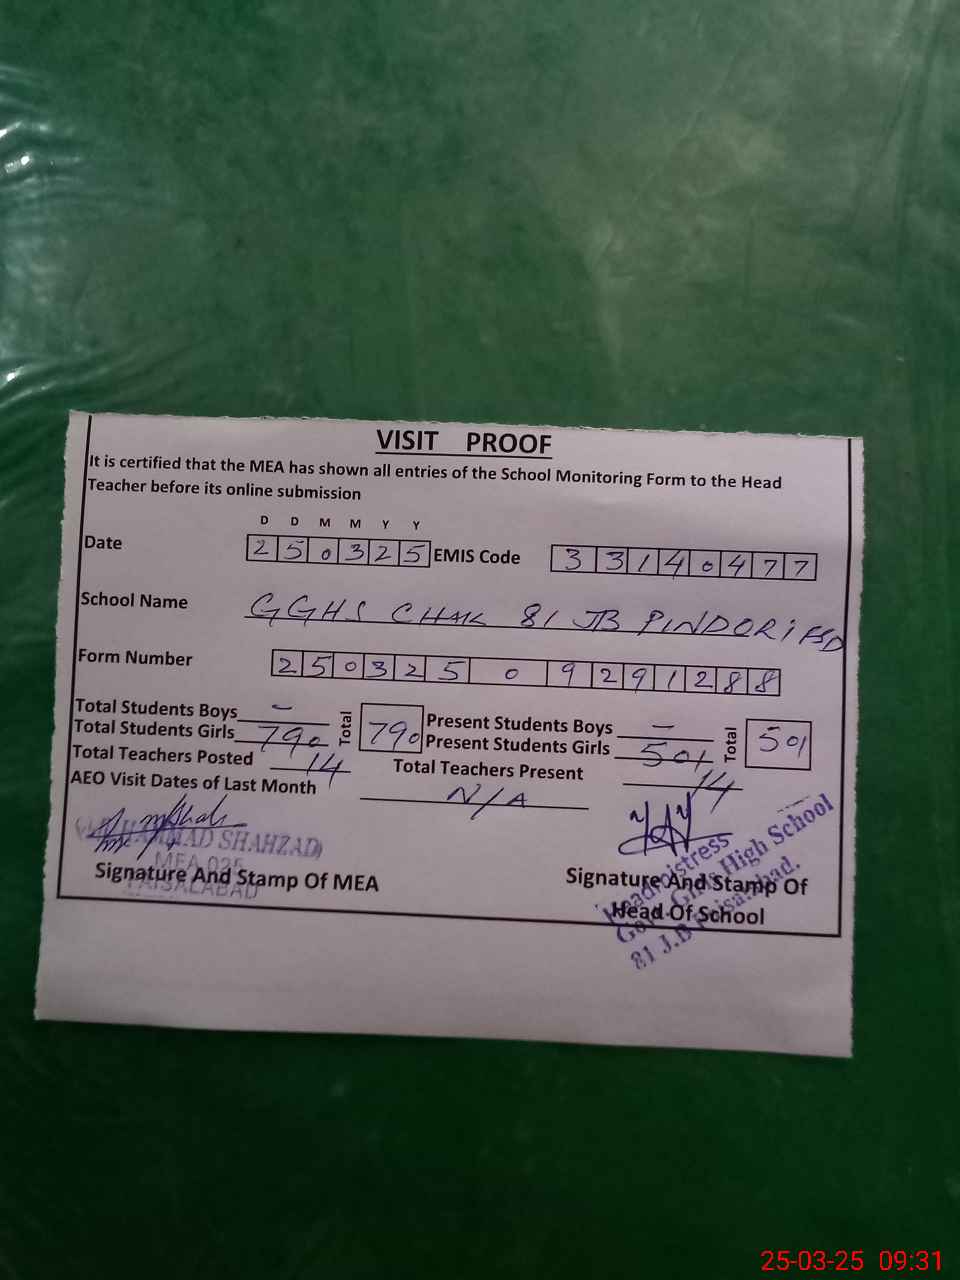 VISIT PROOF
It is certified that the MEA has shown all entries of the School Monitoring Form to the Head
Teacher before its online submission
D D M M Y Y
Date 2 5 0 3 2 5 EMIS Code 3 3 1 4 0 4 7 7
School Name GGHS CHAK 81 JB PINDORI FSD
Form Number 2 5 0 3 2 5 0 9 2 9 1 2 8 8
Total Students Boys - Total 790 Present Students Boys - Total 501
Total Students Girls 790 Present Students Girls 501
Total Teachers Posted 14 Total Teachers Present 14
AEO Visit Dates of Last Month N/A
MUHAMMAD SHAHZAD
MEA 025
FAISALABAD
Signature And Stamp Of MEA
Headmistress
Govt. Girls High School
81 J.B Faisalabad.
Signature And Stamp Of
Head Of School
25-03-25 09:31